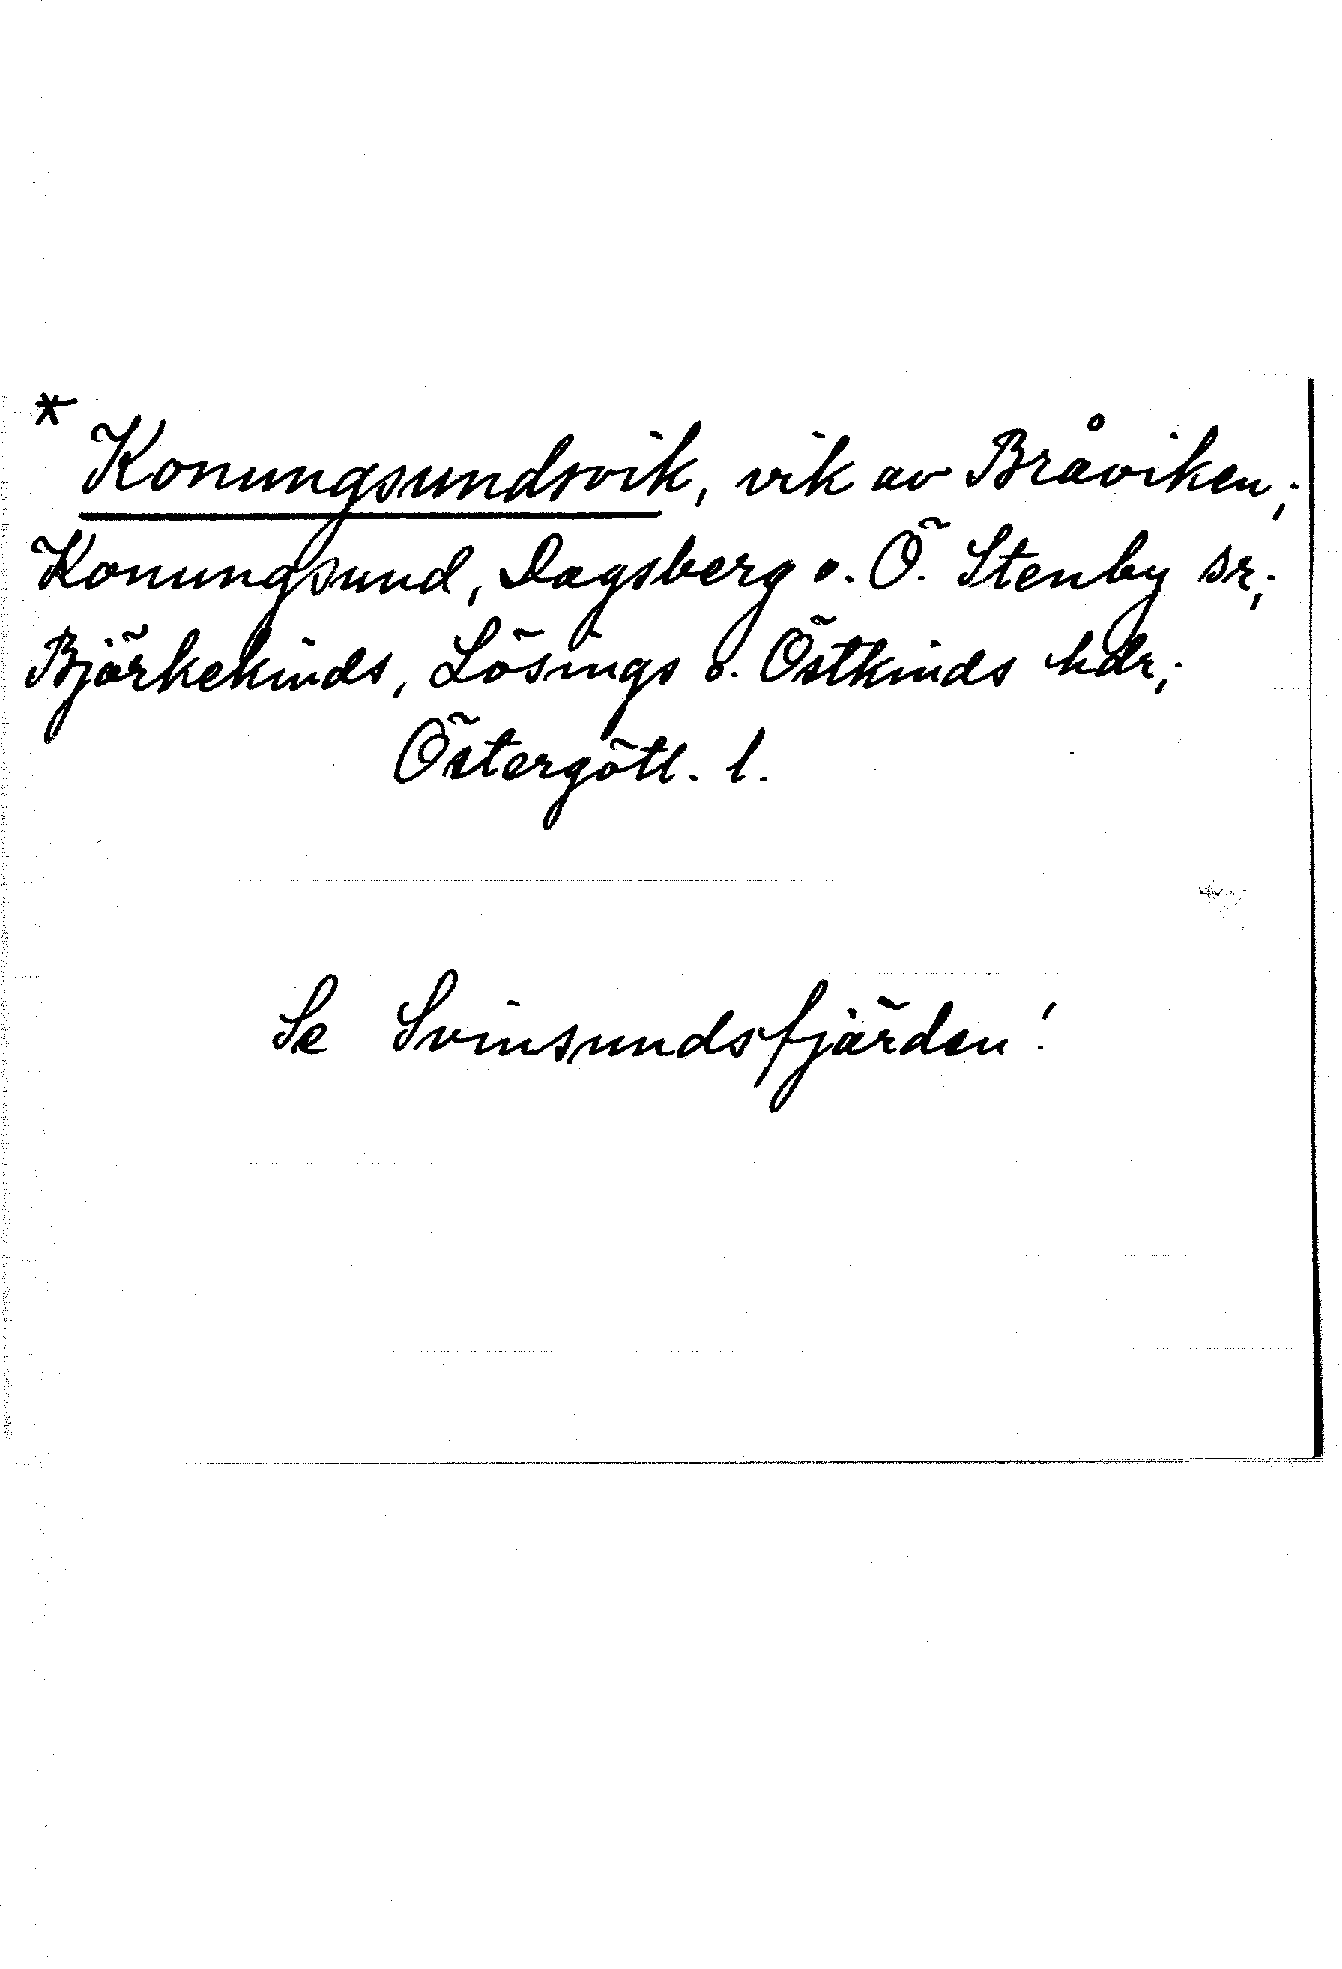 * Konungsundsvik, vik av Bråviken;
Konungsund, Dagsberg o. Ö. Stenby sr;
Björkekinds, Lösings o. Östkinds hdr;
Östergötl. l.
Se Svinsundsfjärden!